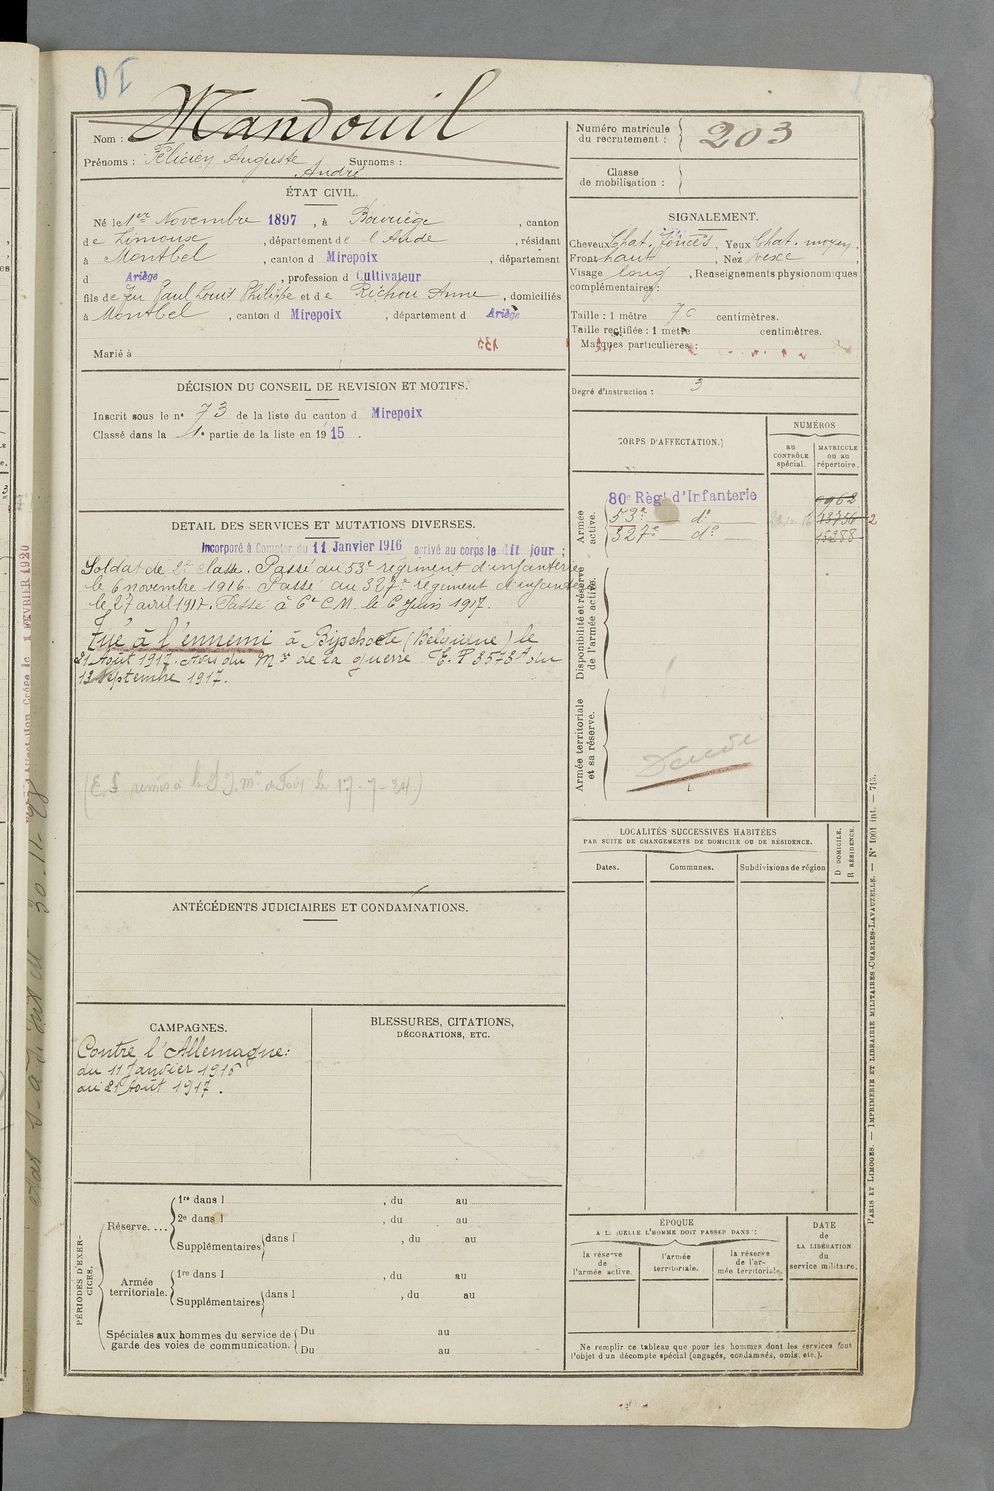 DI
Nom : Mandouil
Prénoms : Félicien Auguste Surnoms :
André
ÉTAT CIVIL.
Né le 1er Novembre 1897, à Bouriège, canton
de Limoux, département de l'Aude, résidant
à Montbel, canton d Mirepoix, département
d Ariège, profession d Cultivateur
fils de feu Paul Louis Philippe et de Richou Anne, domiciliés
à Montbel, canton d Mirepoix, département d Ariège
Marié à
DÉCISION DU CONSEIL DE REVISION ET MOTIFS.
Inscrit sous le n° 73 de la liste du canton d Mirepoix
Classé dans la 1e partie de la liste en 1915.
DETAIL DES SERVICES ET MUTATIONS DIVERSES.
Incorporé à Compter du 11 Janvier 1916 arrivé au corps le dit jour ;
Soldat de 2e classe. Passé au 53e régiment d'infanterie
le 6 novembre 1916. Passé au 327e régiment d'infanterie
le 27 avril 1917. Passé à 6e C M. le 6 Juin 1917.
Tué à l'ennemi à Bypschocte (Belgique) le
21 Août 1917. Avis du Mre de la guerre E. P 3573 du
13 Septembre 1917.
remis à Foix le 17-7-24)
ANTÉCÉDENTS JUDICIAIRES ET CONDAMNATIONS.
CAMPAGNES.
Contre l'Allemagne:
du 11 Janvier 1916
au 21 Août 1917.
BLESSURES, CITATIONS,
DÉCORATIONS, ETC.
PÉRIODES D'EXER-
CICES.
Réserve....
1re dans l , du au
2e dans l , du au
Supplémentaires dans l , du au
Armée
territoriale.
1re dans l , du au
Supplémentaires dans l , du au
Spéciales aux hommes du service de
garde des voies de communication.
Du au
Du au
Numéro matricule
du recrutement : 203
Classe
de mobilisation :
SIGNALEMENT.
Cheveux Chat. foncés, Yeux Chat. moyen,
Front haut, Nez vexe,
Visage long, Renseignements physionomiques
complémentaires :
Taille : 1 mètre 70 centimètres.
Taille rectifiée : 1 mètre centimètres.
Marques particulières :
Degré d'instruction : 3
CORPS D'AFFECTATION.
NUMÉROS
au
CONTRÔLE
spécial.
MATRICULE
ou au
répertoire.
Armée
active.
80e Règt d'Infanterie
53e do 13756
327e do 16288
Disponibilité et réserve
de l'armée active.
Armée territoriale
et sa réserve.
LOCALITÉS SUCCESSIVES HABITÉES
PAR SUITE DE CHANGEMENTS DE DOMICILE OU DE RÉSIDENCE.
Dates.
Communes.
Subdivisions de région
D DOMICILE.
R RÉSIDENCE
ÉPOQUE
A LAQUELLE L'HOMME DOIT PASSER DANS :
la réserve
de
l'armée active.
l'armée
territoriale.
la réserve
de l'ar-
mée territoriale.
DATE
de
LA LIBÉRATION
du
service militaire.
Ne remplir ce tableau que pour les hommes dont les services font
l'objet d'un décompte spécial (engagés, condamnés, omis, etc.).
PARIS ET LIMOGES. — IMPRIMERIE ET LIBRAIRIE MILITAIRES CHARLES-LAVAUZELLE. — N° 1001 int. — 715.